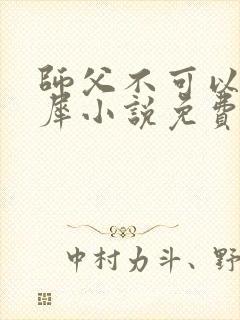 師父不可以
犀小說免費
中村力斗、野